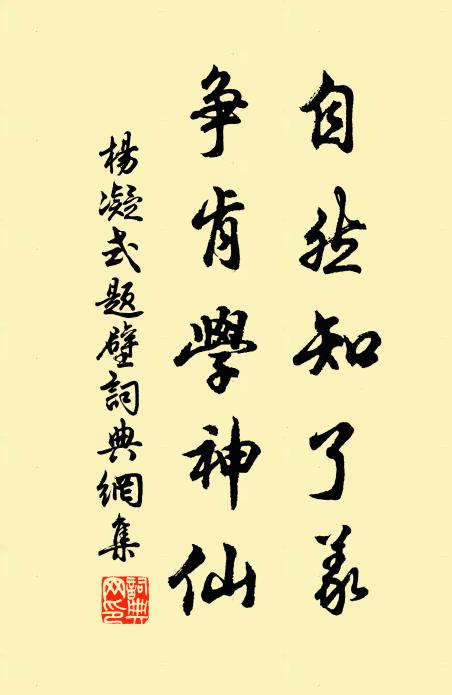 自然知了義
争肯學神仙
楊凝式題壁詞典網集
詞典網印